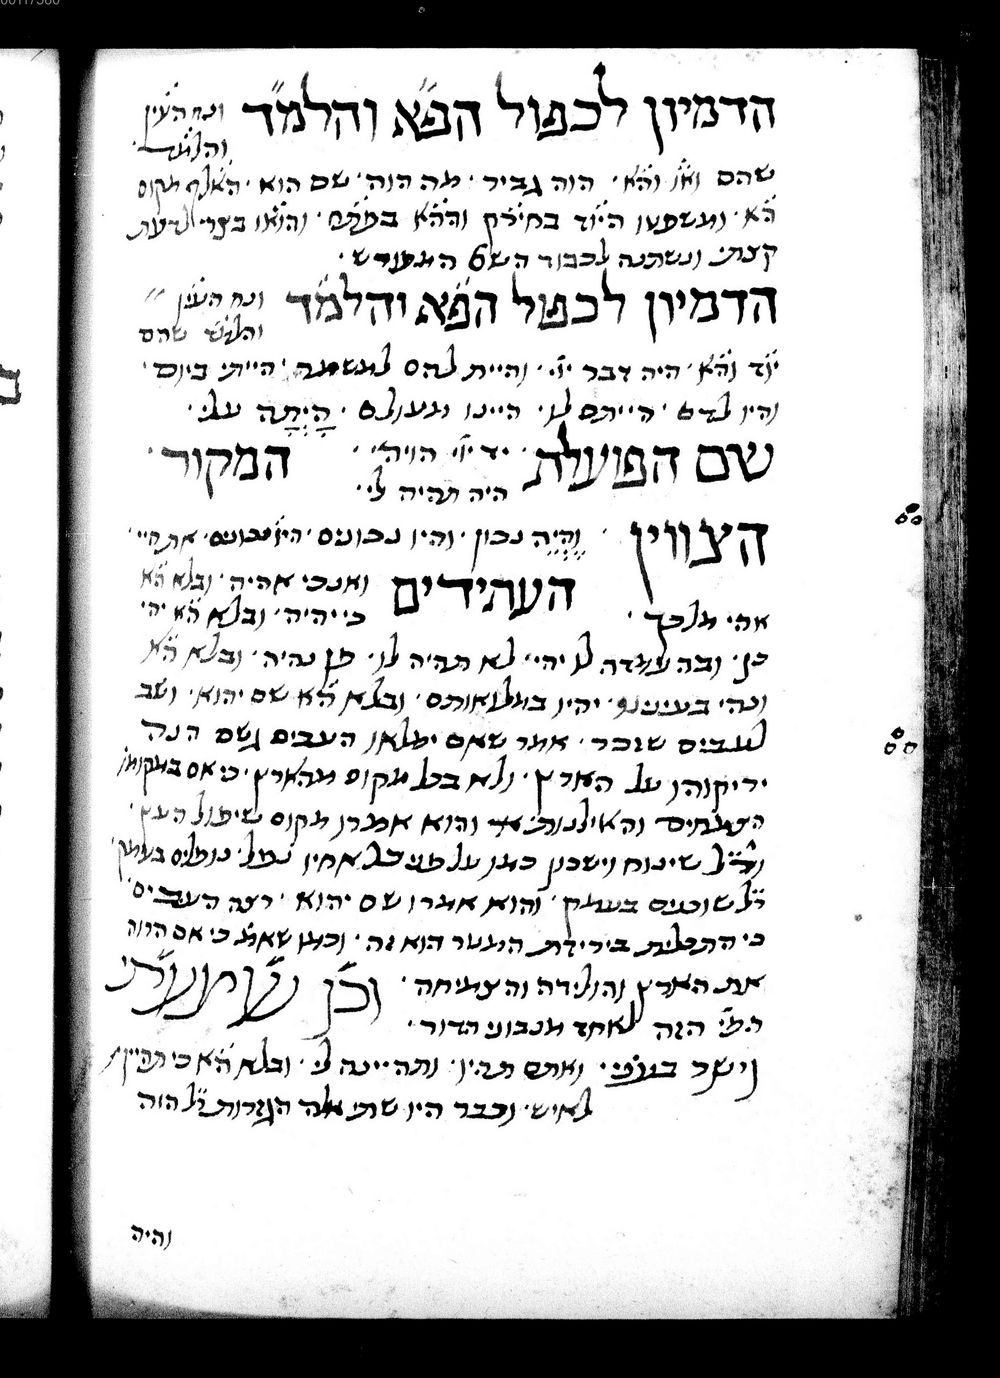 הדמיון לכפול הפ״א והלמ״ד ונח העין
והלמד
שהם ואו והא׳ הוה גביר׳ מה הוה׳ שם הוא׳ האלף מקום
הא׳ ומשפטו היוד בחירק וההא בפתח׳ והואו בצרי לדעת
קצתי ונשתנה לכבוד השם המקודש׳
הדמיון לכפול הפ״א והלמ״ד ונח העין
והלמד שהם
יוד והא׳ היה דבר יי׳ והיית להם למשמה׳ הייתי ביום׳
והיו לדם׳ הייתם לי׳ היינו מעולם׳ הָיְתָה עלי׳
שם הפועלת יד יי׳ הויה׳ המקור׳
היה תהיה לי׳
הצווין וֶהְיֵה נכון׳ והיו נכונים׳ היו נכונים׳ את חיי׳
העתידים ואנכי אהיה׳ ובלא הא
אהי מלכך׳ כי יהיה׳ ובלא הא יהי
כן׳ ובה למדה לו יהי׳ לא תהיה לו׳ פן נהיה׳ ובלא הא
ונהי בעינינו׳ יהיו במלואותם׳ ובלא הא שם יהוא׳ ושב
לעבים שנזכר׳ אמר שאם ימלאו העבים גשם הנה
יריקוהו על הארץ׳ ולא בכל מקום מהארץ׳ כי אם במקומו
הצמחים והאילנות׳ והוא אמרו מקום שיפול העץ׳
ור״ל שינוח וישכון כמו על פני כל אחיו נפל׳ נופלים בעמק׳
ר״ל שוכנים בעמק׳ והוא אמרו שם יהוא׳ רצה העבים׳
כי התכלית בירידת המטר הוא זה׳ וכמו שאמ׳ כי אם הרוה
את הארץ והולידה והצמיחה׳ וכן שמעתי
הפי׳ הזה לאחד מנבוני הדור׳
וישר בעיני׳ ואתם תהיו׳ ותהיינה לי׳ ובלא הא כי תהיין
לאיש׳ וכבר היו שתי אלה הגזרות ר״ל הוה
והיה